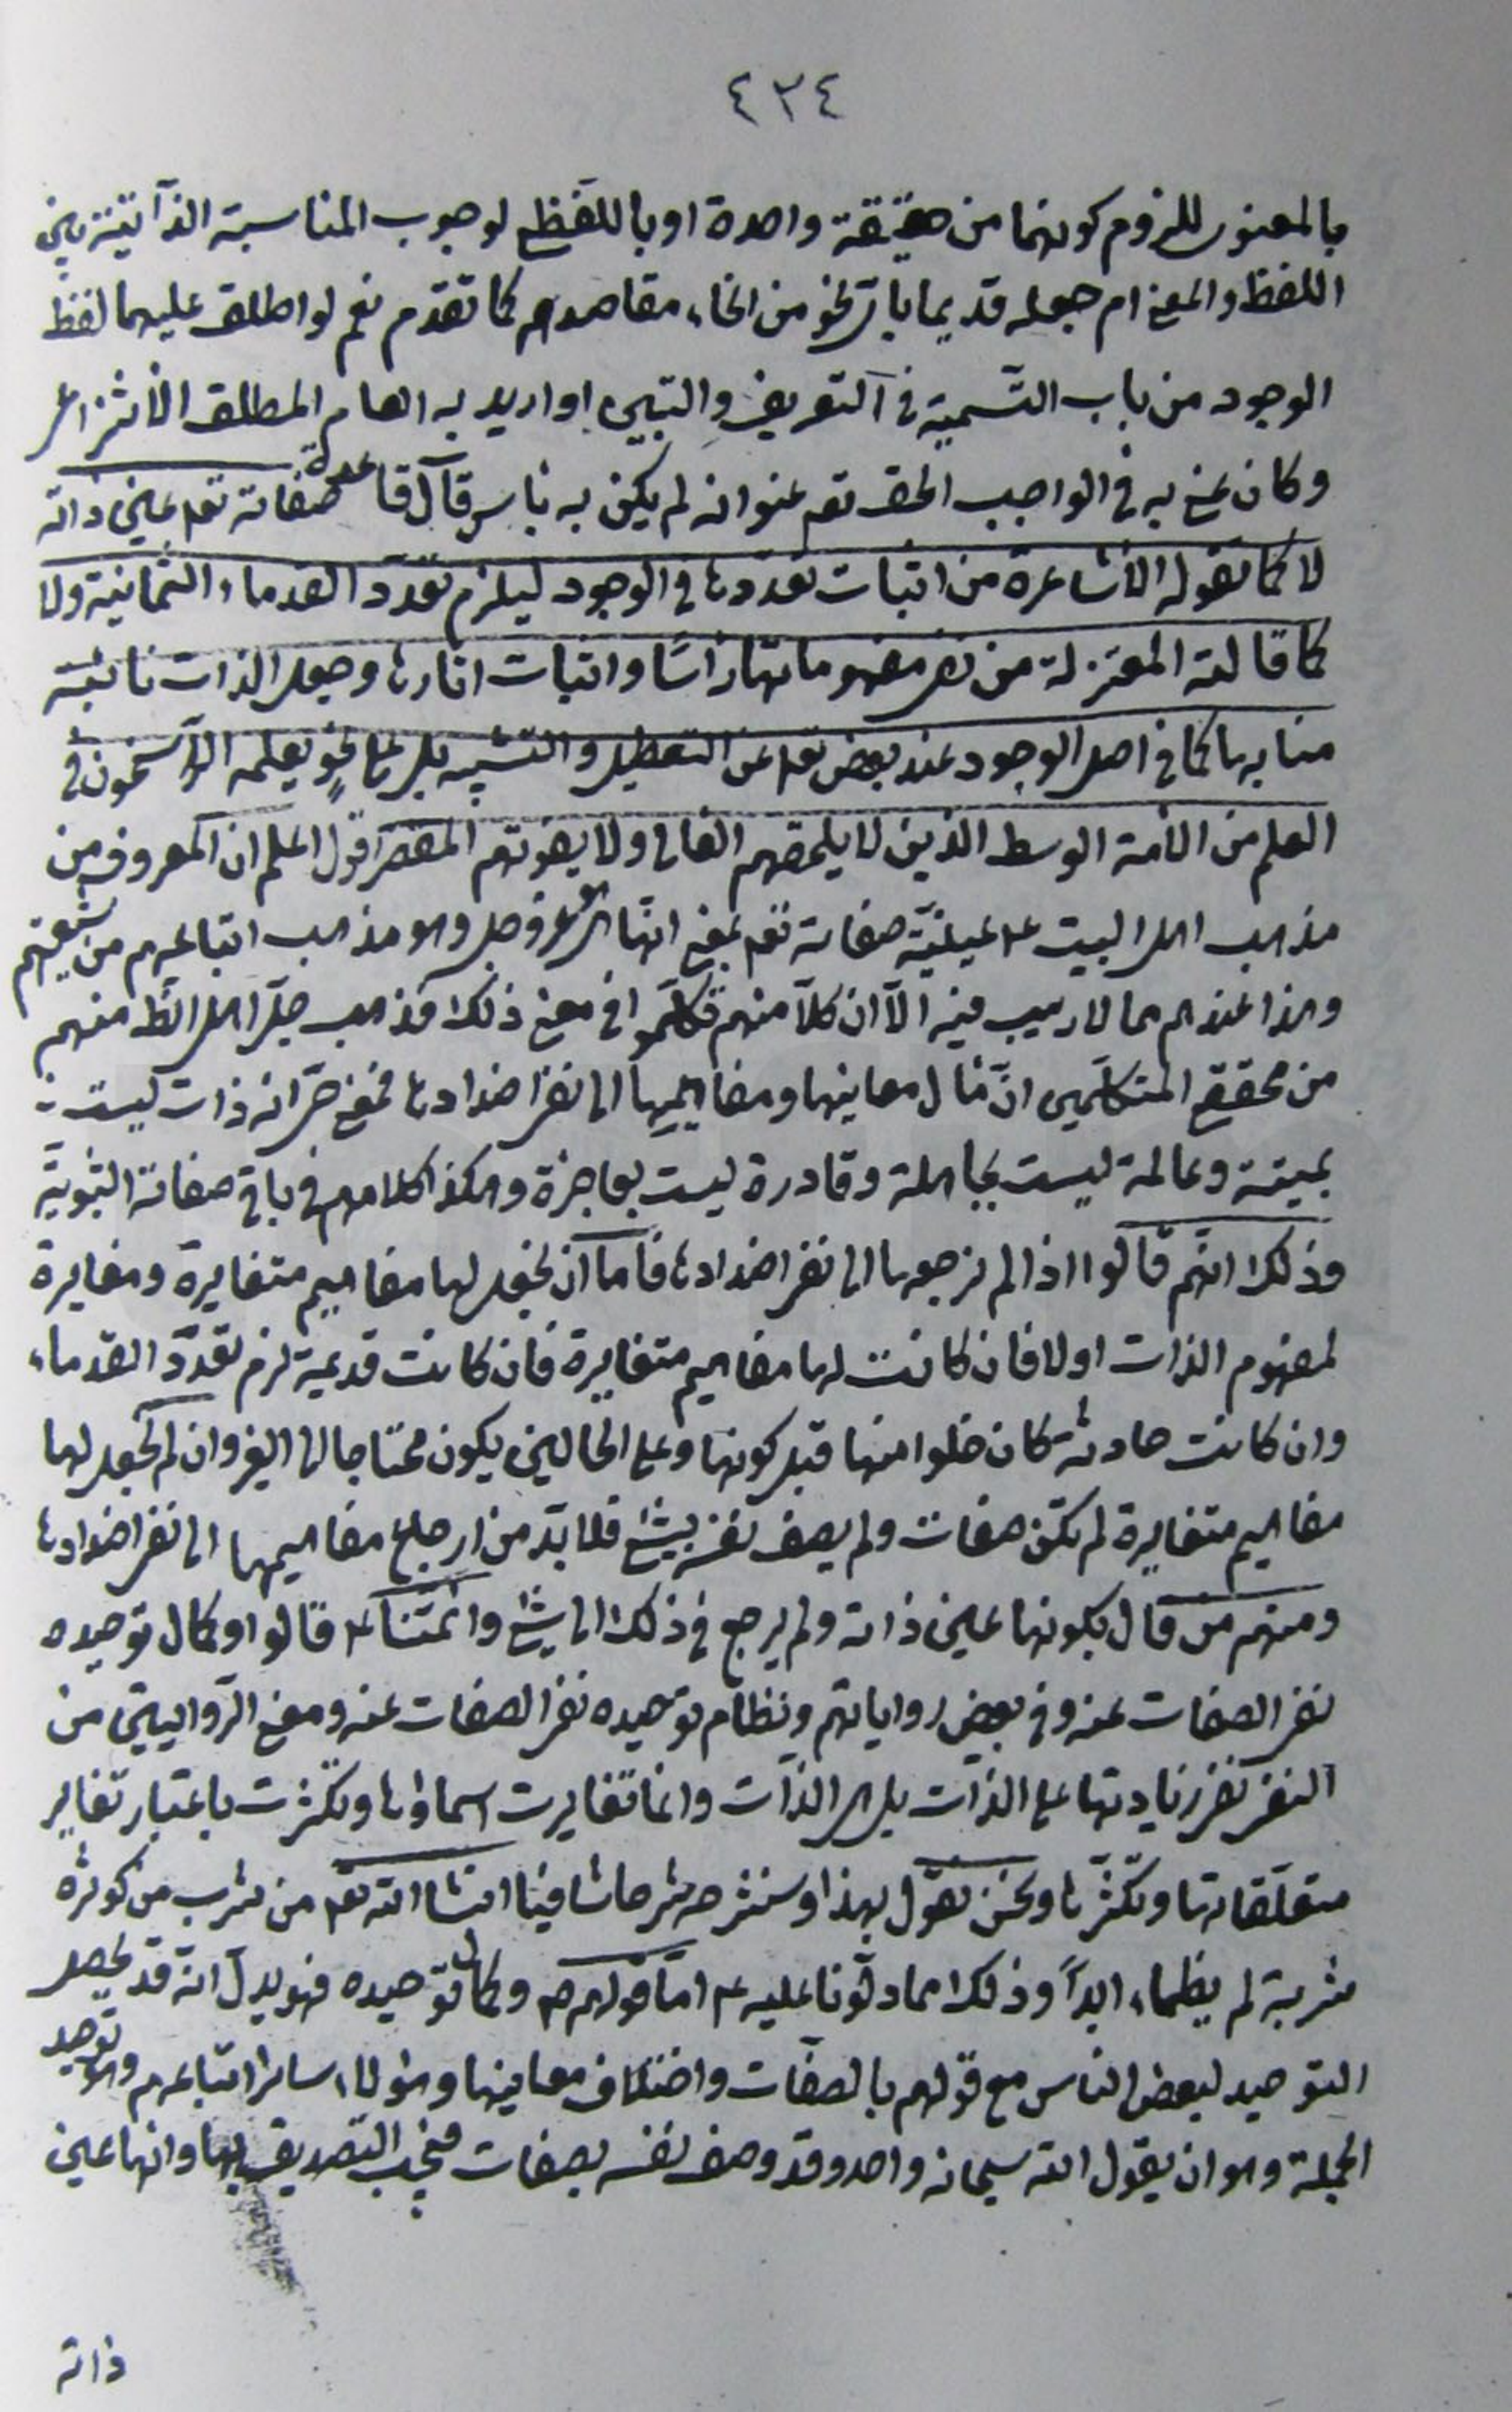 ٤٣٤
بالمعنوى للزوم كونهما من حقيقة واحدة او باللفظى لوجوب المناسبة الذّاتيّة بين
اللفظ والمعنى ام جعله قديما باىّ نحو من انحاء مقاصدهم كما تقدم نعم لو اطلق عليهما لفظ
الوجود من باب التّسمية فى التعريف والتبيين او اريد به العام المطلق الانتزاعى
وكان عنى به فى الواجب الحق تعم عنوانه لم يكن به باس قال قاعدة صفاته تعم عين ذاته
لا كما تقوله الاشاعرة من اثبات تعددها فى الوجود ليلزم تعدّد القدماء الثمانية ولا
كما قالته المعتزلة من نفى مفهوماتها راسًا واثبات اثارها وجعل الذات نائبة
منابها كما فى اصل الوجود عند بعض تعم عن التعطيل والتشبيه بل على نحوٍ يعلمه الرّاسخون فى
العلم من الامة الوسط الذين لا يلحقهم الغالى ولا يفوتهم المقصر اقول اعلم ان المعروف من
مذهب اهل البيت ع عينيّة صفاته تعم بمعنى انّها هو عز وجل وهو مذهب اتباعهم من شيعتهم
وهذا عندهم مما لا ريب فيه الّا ان كلّا منهم تكلّموا فى معنى ذلك فذهب جلّ اهل النظر منهم
من محققى المتكلّمين انّ مٰال معانيها ومفاهيمها الى نفى اضدادها فمعنى حىّ انه ذات ليست
بميتة وعالمة ليست بجاهلة وقادرة ليست بعاجزة وهكذا كلامهم فى باقى صفاته الثبوتيّة
وذلك انّهم قالوا اذا لم نرجعها الى نفى اضدادها فامّا ان نجعل لها مفاهيم متغايرة ومغايرة
لمفهوم الذات اولا فان كانت لها مفاهيم متغايرة فان كانت قديمة لزم تعدّد القدماء
وان كانت حادثة كان خلوا منها قبل كونها وعلى الحالين يكون محتاجا الى الغير وان لم نجعل لها
مفاهيم متغايرة لم تكن صفات ولم يصف نفسه بشئ فلا بدّ من ارجاع مفاهيمها الى نفى اضدادها
ومنهم من قال بكونها عين ذاته ولم يرجع فى ذلك الى شئ وائمّتنا ع قالوا وكمال توحيده
نفى الصفات عنه وفى بعض رواياتهم ونظام توحيده نفى الصفات عنه ومعنى الرّوايتين من
النفى نفى زيادتها على الذّات بل هى الذّات وانما تغايرت اسماؤها وتكثرت باعتبار تغاير
متعلّقاتها وتكثّرها ونحن نقول بهذا وسنشرحه شرحا شافيا انشا الله تعم من شرب من كوثره
شربة لم يظماء ابداً وذلك مما دلّونا عليه ع امّا قولهم ع وكمال توحيده فهو يدلّ انه قد يحصل
التوحيد لبعض الناس مع قولهم بالصفات واختلاف معانيها وهؤلاء ساير اتباعهم وهو توحيد
الجملة وهو ان يقول الله سبحانه واحد وقد وصف نفسه بصفات فيجب التصديق بها وانها عين
ذاته